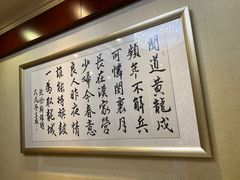 聞道黃龍戍
頻年不解兵
可憐閨裏月
長在漢家營
少婦今春意
良人昨夜情
誰能將旗鼓
一為取龍城